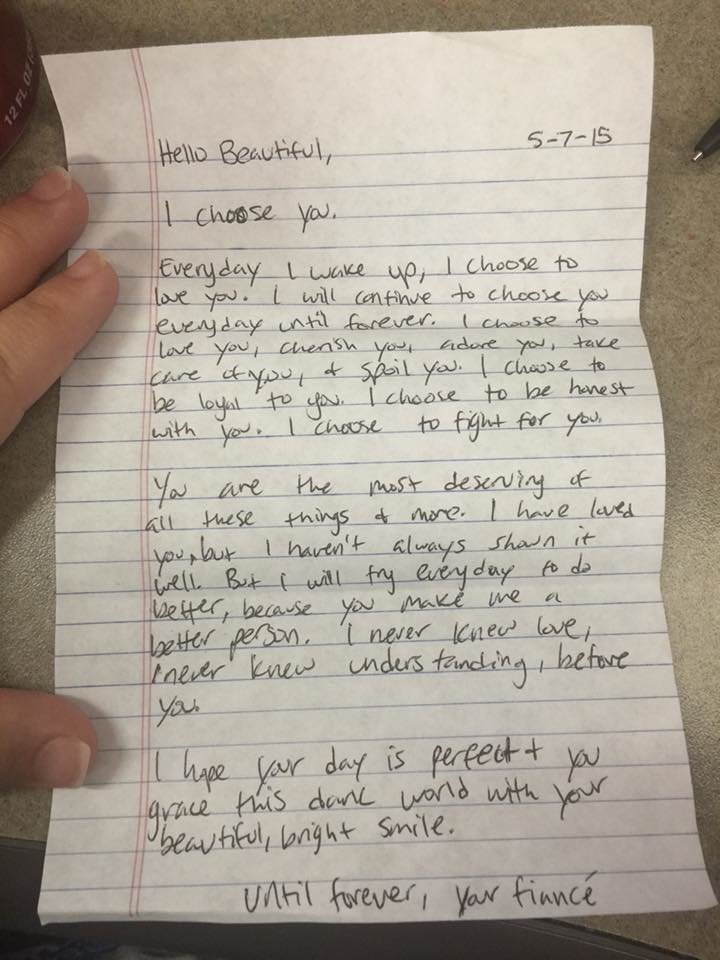 12 FL OZ
5-7-15
Hello Beautiful,
I choose you.
Everyday I wake up, I choose to
love you. I will continue to choose you
everyday until forever. I choose to
love you, cherish you, adore you, take
care of you, & spoil you. I choose to
be loyal to you. I choose to be honest
with you. I choose to fight for you.
You are the most deserving of
all these things & more. I have loved
you, but I haven't always shown it
well. But I will try everyday to do
better, because you make me a
better person. I never knew love,
I never knew understanding, before
you.
I hope your day is perfect & you
grace this dark world with your
beautiful, bright smile.
Until forever, your fiancé